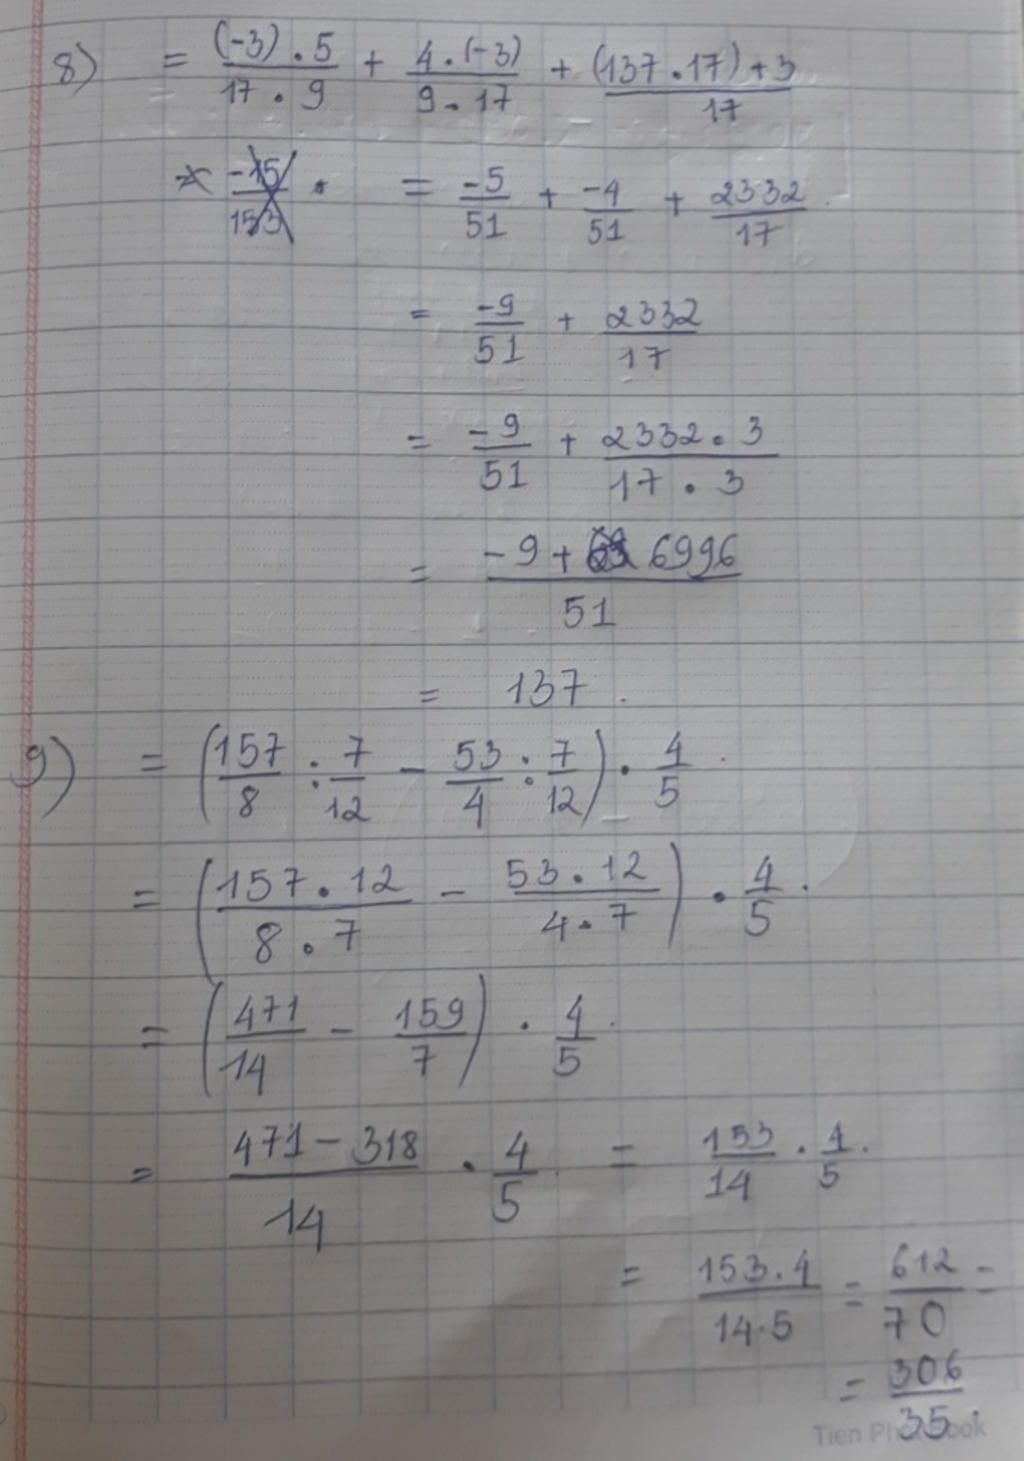 8) = \frac{(-3) . 5}{17 . 9} + \frac{4 . (-3)}{9 . 17} + \frac{(137 . 17) + 3}{17}
\frac{-15}{153} . = \frac{-5}{51} + \frac{-4}{51} + \frac{2332}{17}
= \frac{-9}{51} + \frac{2332}{17}
= \frac{-9}{51} + \frac{2332 . 3}{17 . 3}
= \frac{-9 + 6996}{51}
= 137.
9) = (\frac{157}{8} : \frac{7}{12} - \frac{53}{4} : \frac{7}{12}) . \frac{4}{5}
= (\frac{157 . 12}{8 . 7} - \frac{53 . 12}{4 . 7}) . \frac{4}{5}
= (\frac{471}{14} - \frac{159}{7}) . \frac{4}{5}
= \frac{471 - 318}{14} . \frac{4}{5} = \frac{153}{14} . \frac{4}{5}
= \frac{153 . 4}{14 . 5} = \frac{612}{70} =
= \frac{306}{35}